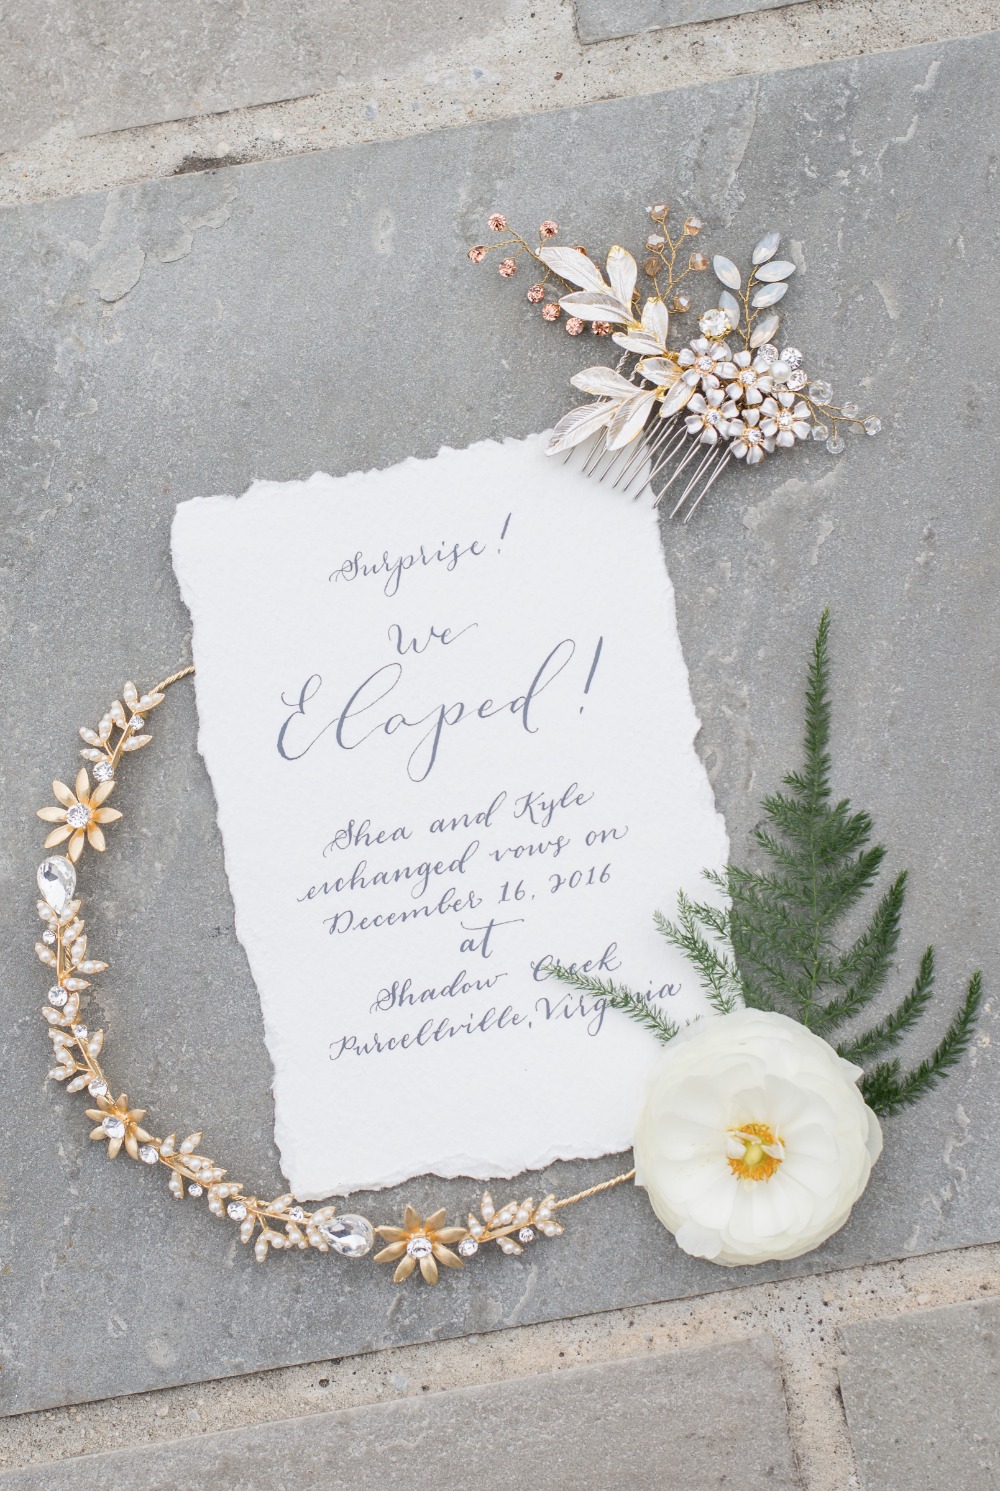 Surprise!
We
Eloped!
Shea and Kyle
exchanged vows on
December 16, 2016
at
Shadow Creek
Purcellville, Virginia